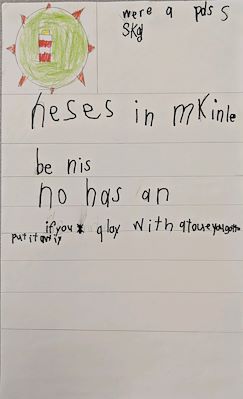 were a pds s
Skgl
heses in mKinle
be nis
no has an
if you play with a toue you gotto
put it awiy